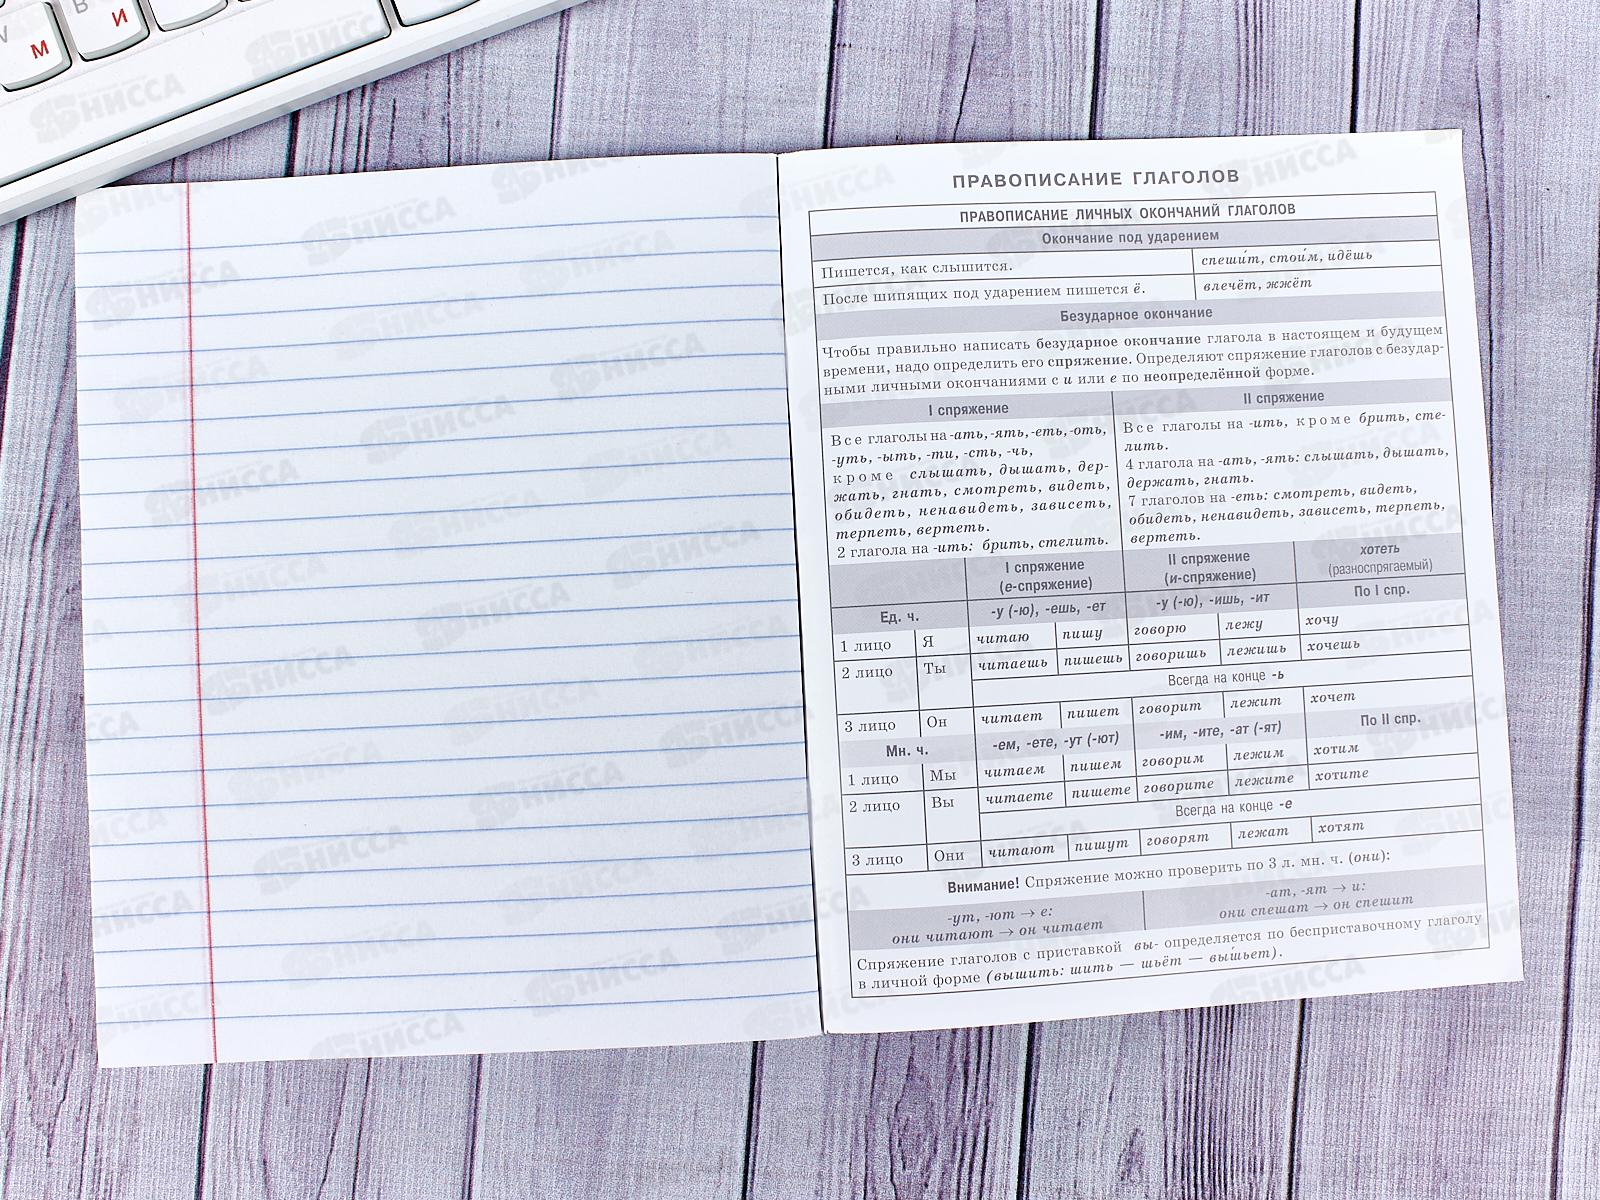 В И
М
ПРАВОПИСАНИЕ ГЛАГОЛОВ
ПРАВОПИСАНИЕ ЛИЧНЫХ ОКОНЧАНИЙ ГЛАГОЛОВ
Окончание под ударением
Пишется, как слышится. спеши́т, стои́м, идёшь
После шипящих под ударением пишется ё. влечёт, жжёт
Безударное окончание
Чтобы правильно написать безударное окончание глагола в настоящем и будущем
времени, надо определить его спряжение. Определяют спряжение глаголов с безудар-
ными личными окончаниями с и или е по неопределённой форме.
I спряжение
Все глаголы на -ать, -ять, -еть, -оть,
-уть, -ыть, -ти, -сть, -чь,
кроме слышать, дышать, дер-
жать, гнать, смотреть, видеть,
обидеть, ненавидеть, зависеть,
терпеть, вертеть.
2 глагола на -ить: брить, стелить.
II спряжение
Все глаголы на -ить, кроме брить, сте-
лить.
4 глагола на -ать, -ять: слышать, дышать,
держать, гнать.
7 глаголов на -еть: смотреть, видеть,
обидеть, ненавидеть, зависеть, терпеть,
вертеть.
I спряжение II спряжение хотеть
(е-спряжение) (и-спряжение) (разноспрягаемый)
Ед. ч. -у (-ю), -ешь, -ет -у (-ю), -ишь, -ит По I спр.
1 лицо Я читаю пишу говорю лежу хочу
2 лицо Ты читаешь пишешь говоришь лежишь хочешь
Всегда на конце -ь
3 лицо Он читает пишет говорит лежит хочет
Мн. ч. -ем, -ете, -ут (-ют) -им, -ите, -ат (-ят) По II спр.
1 лицо Мы читаем пишем говорим лежим хотим
2 лицо Вы читаете пишете говорите лежите хотите
Всегда на конце -е
3 лицо Они читают пишут говорят лежат хотят
Внимание! Спряжение можно проверить по 3 л. мн. ч. (они):
-ут, -ют → е: -ат, -ят → и:
они читают → он читает они спешат → он спешит
Спряжение глаголов с приставкой вы- определяется по бесприставочному глаголу
в личной форме (вышить: шить — шьёт — вы́шьет).
НИССА